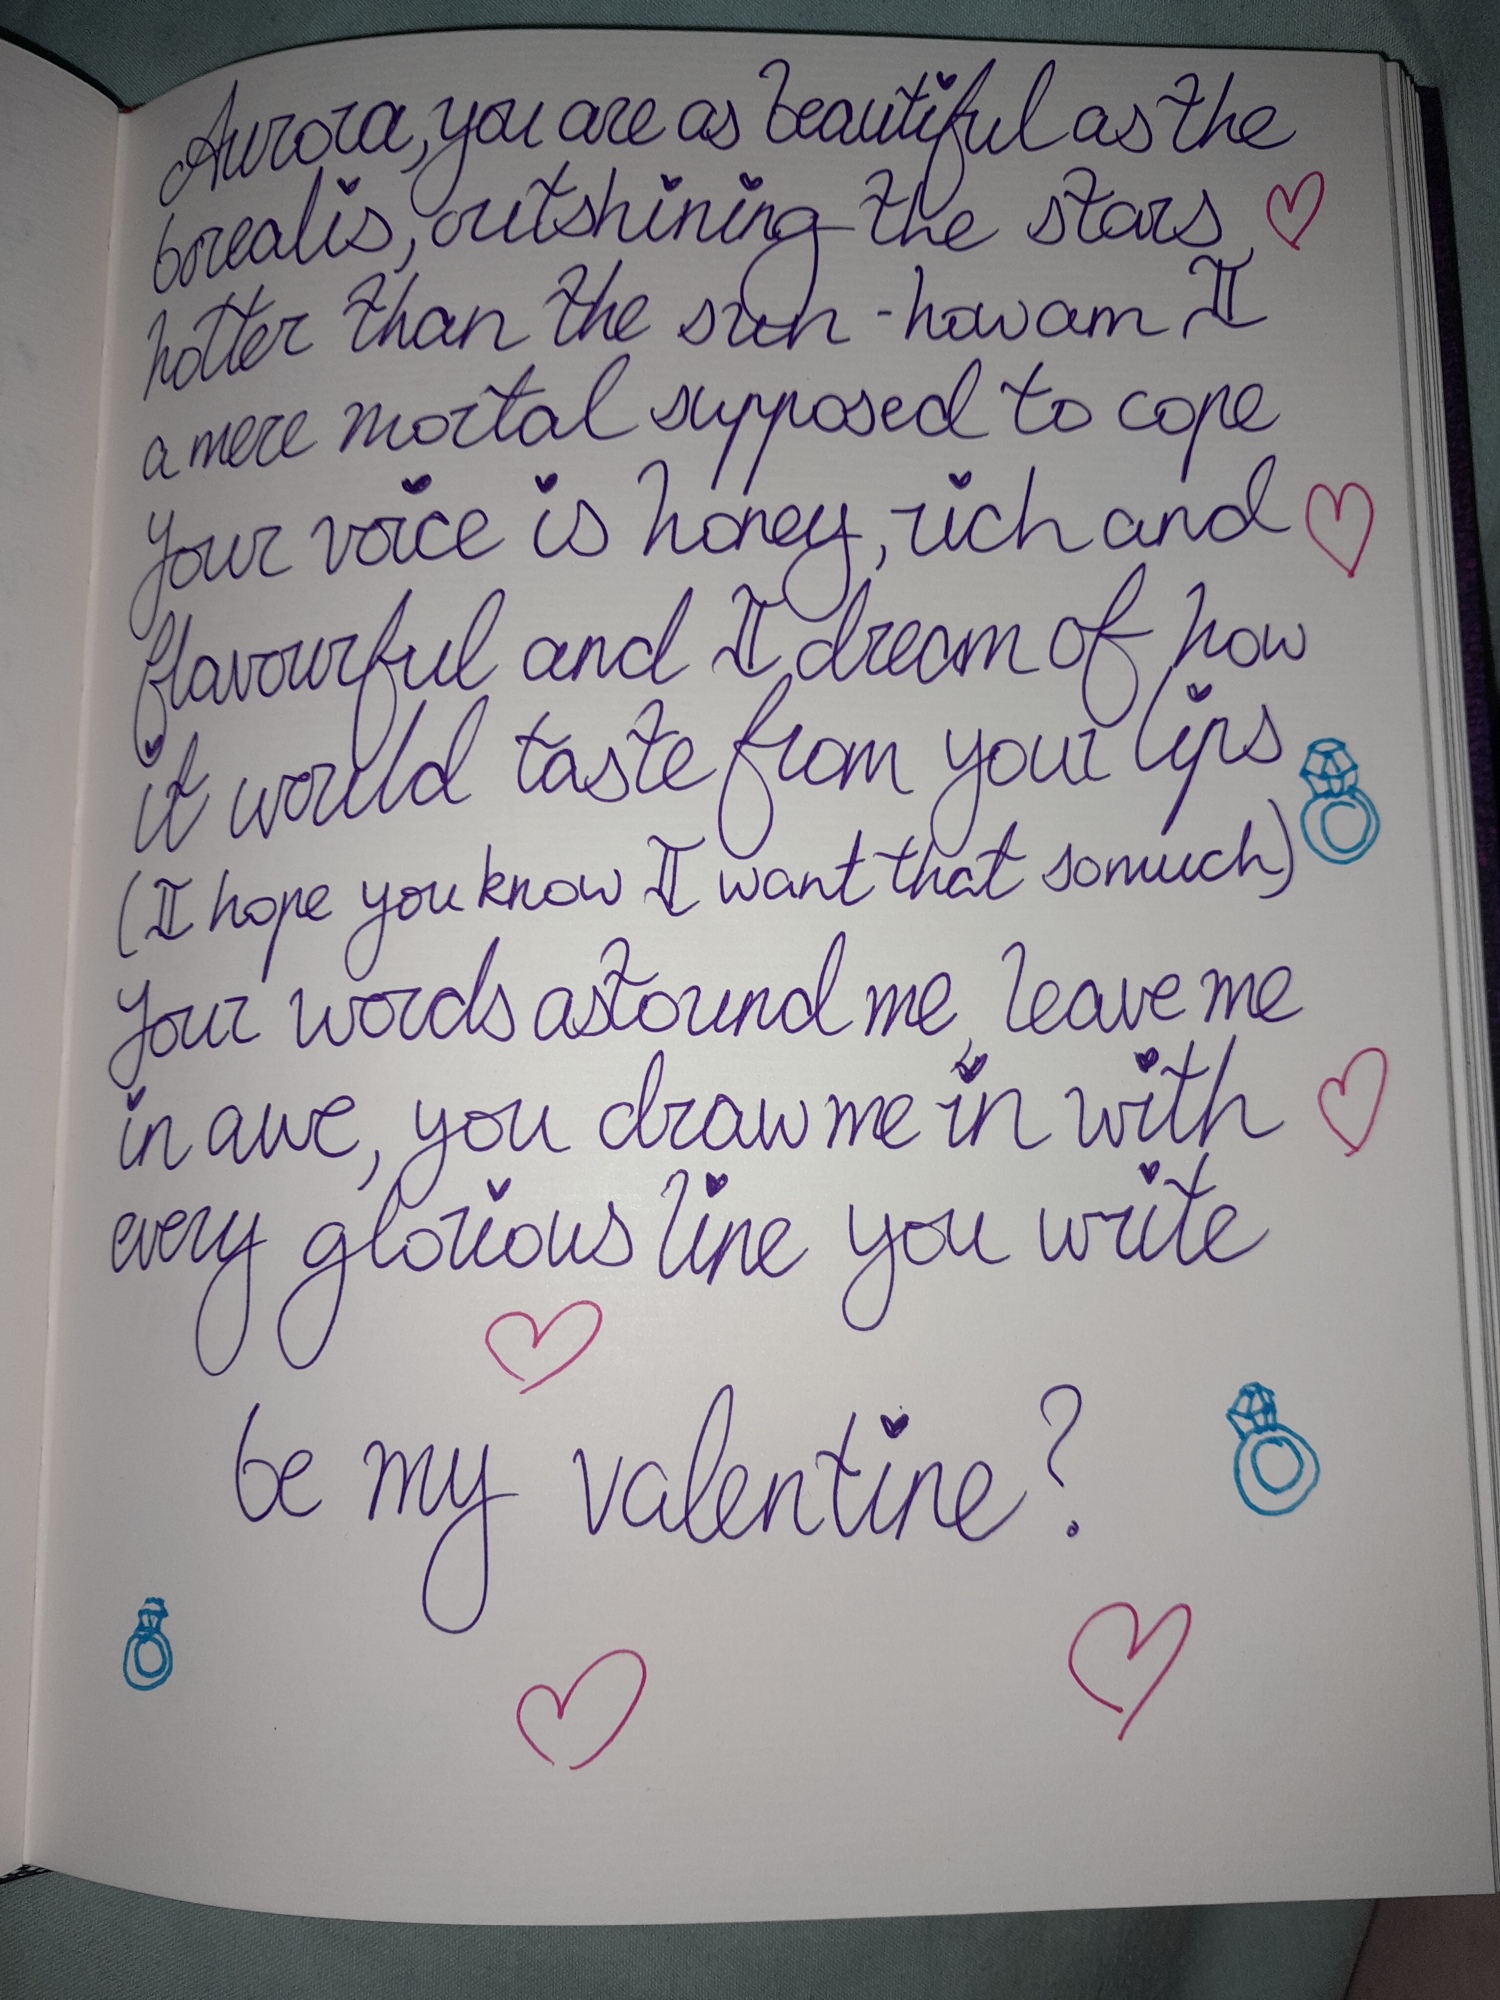 Aurora, you are as beautiful as the
borealis, outshining the stars,
hotter than the sun - how am I
a mere mortal supposed to cope
your voice is honey, rich and
flavourful and I dream of how
it would taste from your lips
(I hope you know I want that so much)
your words astound me, leave me
in awe, you draw me in with
every glorious line you write
be my valentine?